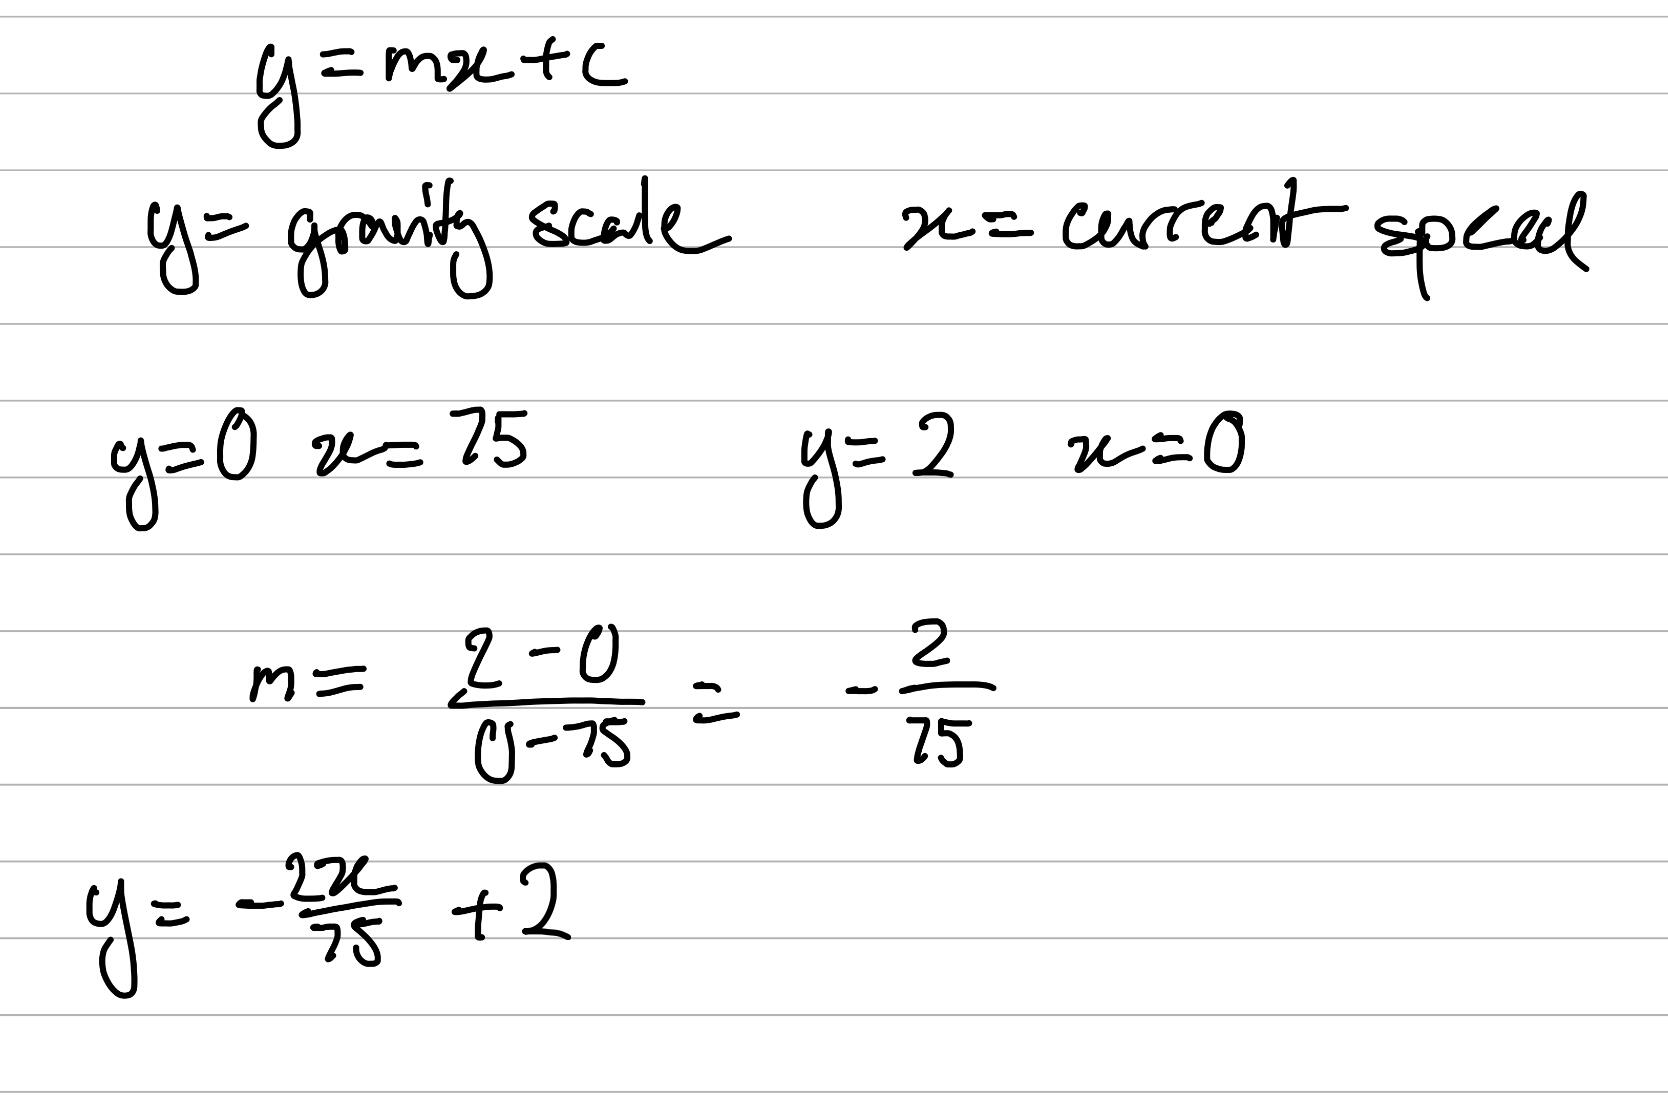 y = mx + c
y = gravity scale x = current speed
y = 0 x = 75 y = 2 x = 0
m = 2 - 0 / 0 - 75 = - 2 / 75
y = - 2x / 75 + 2